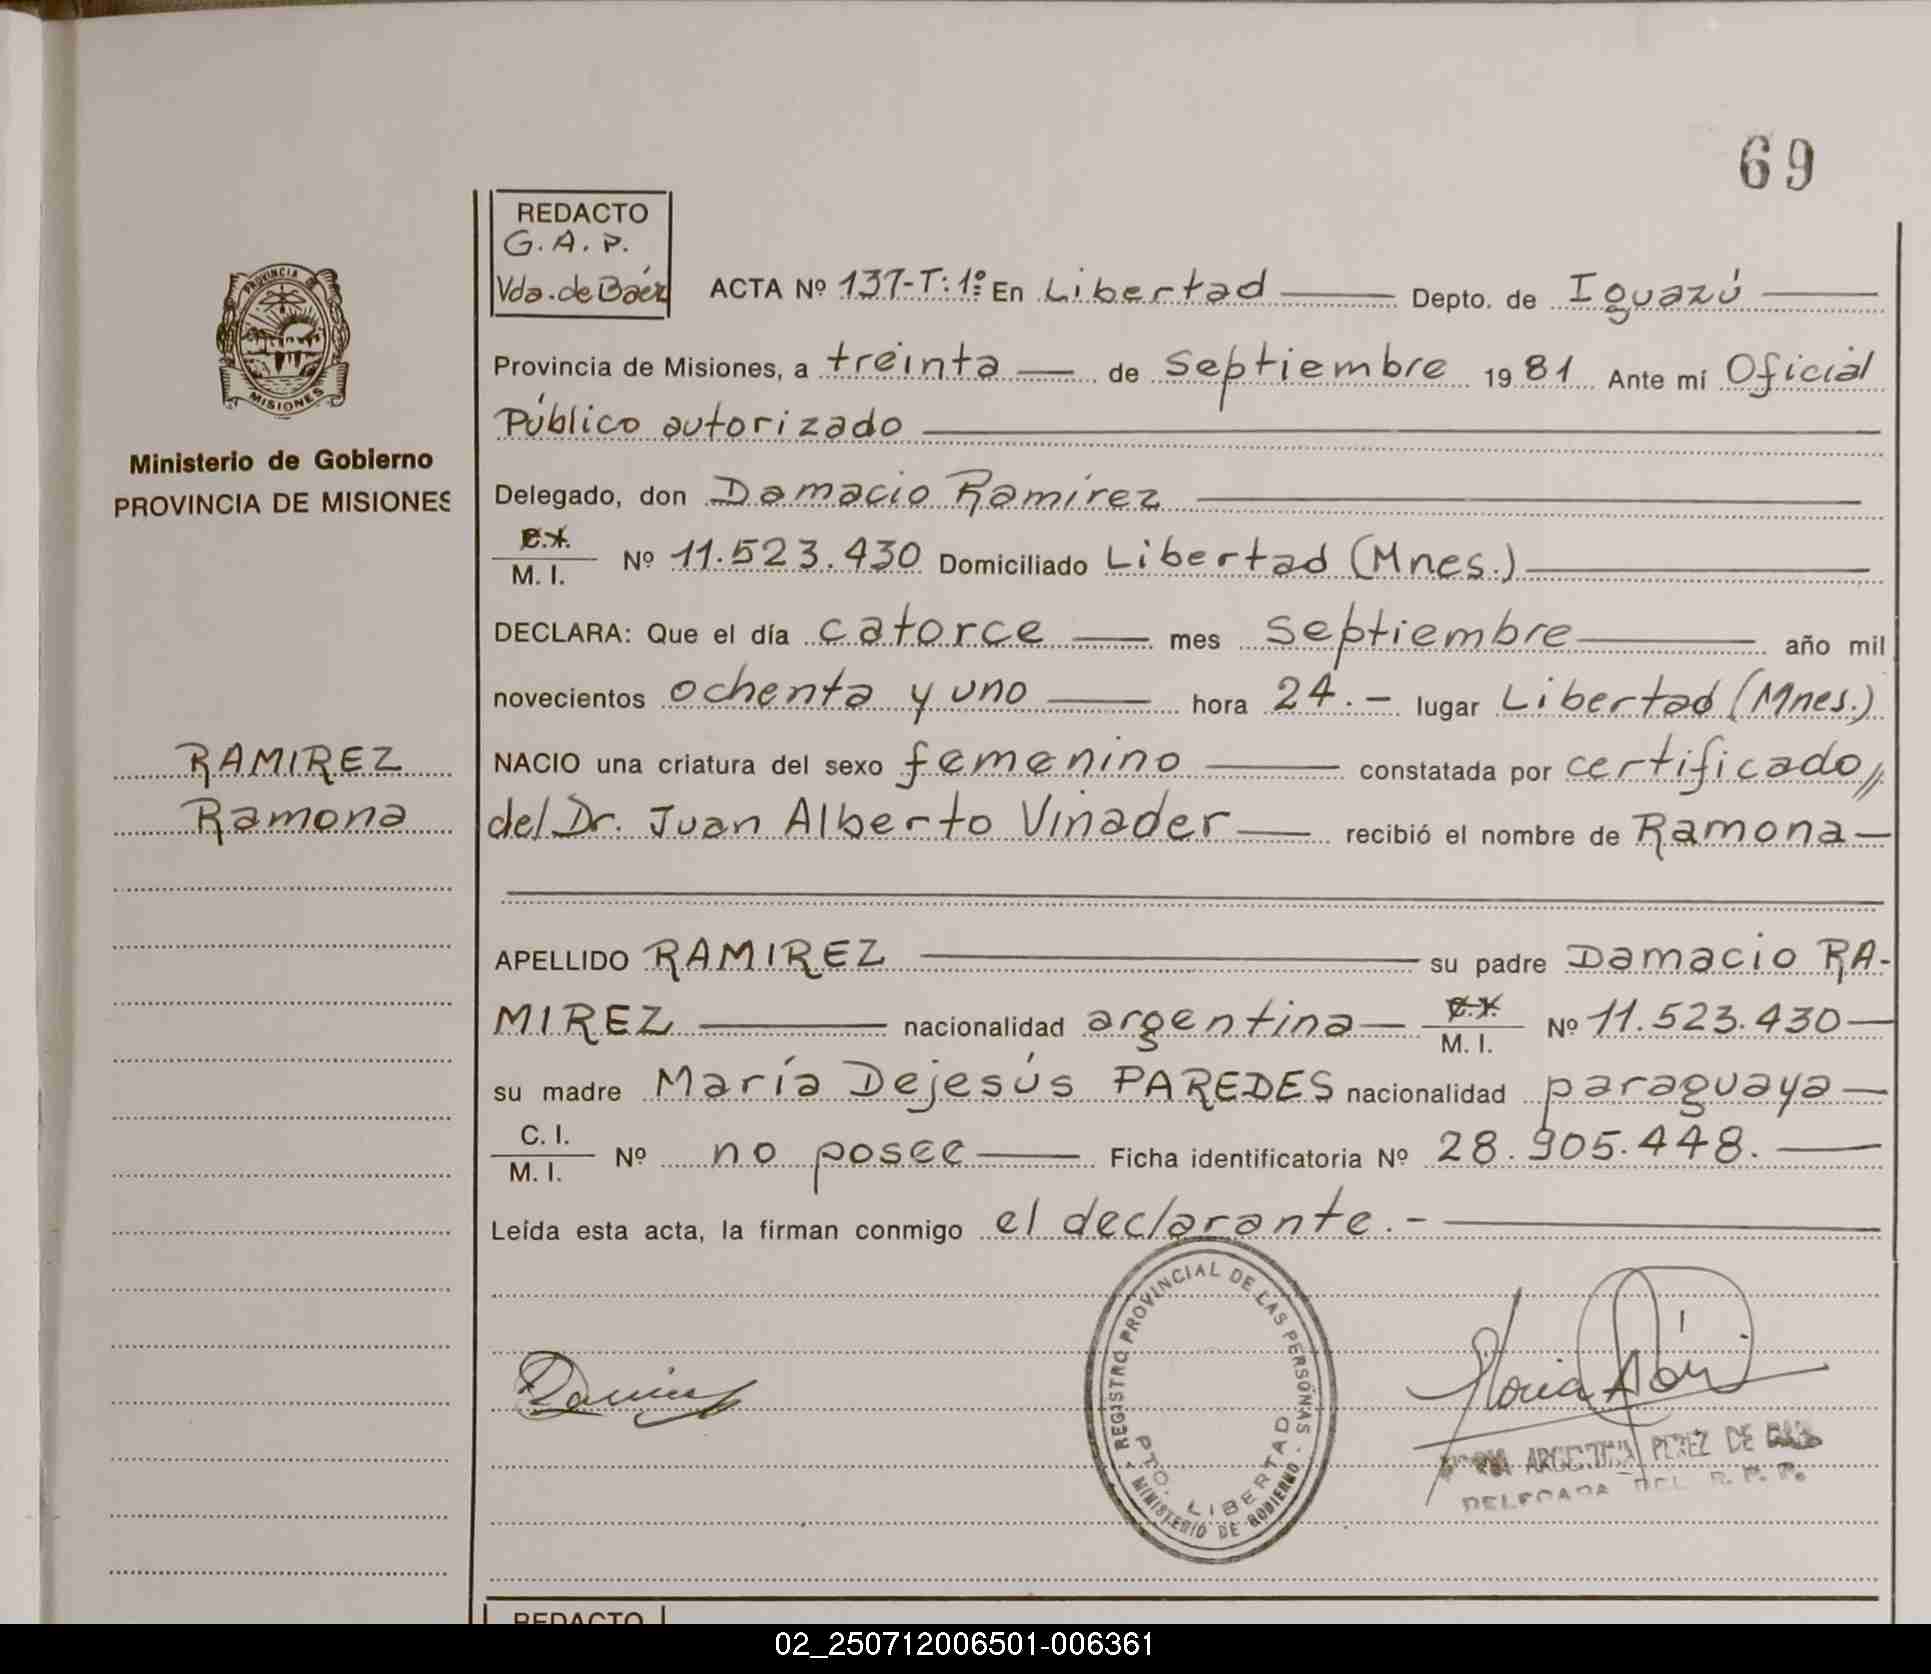 69
REDACTO
G. A. P.
Vda. de Báez
PROVINCIA DE
MISIONES
Ministerio de Gobierno
PROVINCIA DE MISIONES
ACTA Nº 137-T: 1º En Libertad Depto. de Iguazú
Provincia de Misiones, a treinta de septiembre 1981 Ante mí Oficial
Público autorizado
Delegado, don Damacio Ramírez
C.I.
M. I. Nº 11.523.430 Domiciliado Libertad (Mnes.)
DECLARA: Que el día catorce mes septiembre año mil
novecientos ochenta y uno hora 24.- lugar Libertad (Mnes.)
RAMIREZ
NACIO una criatura del sexo femenino constatada por certificado //
Ramona
del Dr. Juan Alberto Vinader recibió el nombre de Ramona
APELLIDO RAMIREZ su padre Damacio RA-
MIREZ nacionalidad argentina C.I. M. I. Nº 11.523.430
su madre María Dejesús PAREDES nacionalidad paraguaya
C. I.
M. I. Nº no posee Ficha identificatoria Nº 28.905.448.
Leída esta acta, la firman conmigo el declarante.-
REGISTRO PROVINCIAL DE LAS PERSONAS
PTO. LIBERTAD
MINISTERIO DE GOBIERNO
ARGENTINA PEREZ DE
DELEGADA DEL R. P. P.
REDACTO
02_250712006501-006361